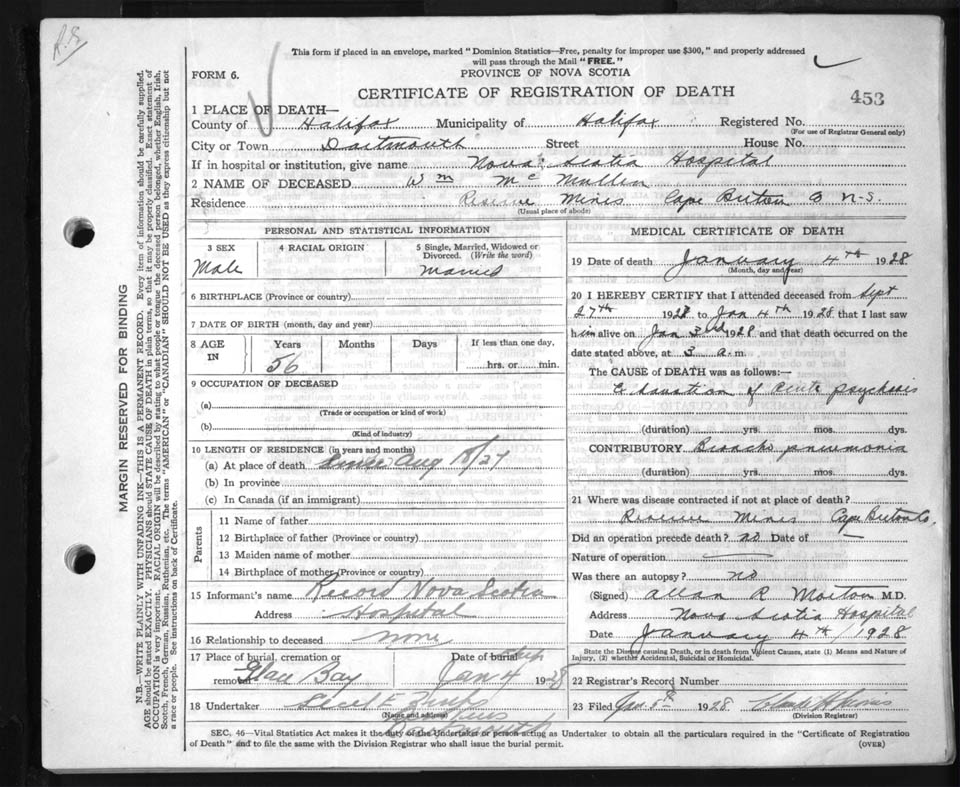 R.S
This form if placed in an envelope, marked "Dominion Statistics—Free, penalty for improper use $300," and properly addressed
will pass through the Mail "FREE."
FORM 6.
PROVINCE OF NOVA SCOTIA
CERTIFICATE OF REGISTRATION OF DEATH
453
1 PLACE OF DEATH—
County of Halifax Municipality of Halifax Registered No.
(For use of Registrar General only)
City or Town Dartmouth Street House No.
If in hospital or institution, give name Nova Scotia Hospital
2 NAME OF DECEASED Wm McMullin
Residence Reserve Mines Cape Breton Co N-S.
(Usual place of abode)
PERSONAL AND STATISTICAL INFORMATION
3 SEX
Male
4 RACIAL ORIGIN
5 Single, Married, Widowed or
Divorced. (Write the word)
Married
6 BIRTHPLACE (Province or country)
7 DATE OF BIRTH (month, day and year)
8 AGE
IN
Years Months Days If less than one day,
56 hrs. or min.
9 OCCUPATION OF DECEASED
(a)
(Trade or occupation or kind of work)
(b)
(Kind of industry)
10 LENGTH OF RESIDENCE (in years and months)
(a) At place of death since Aug /27
(b) In province
(c) In Canada (if an immigrant)
Parents
11 Name of father
12 Birthplace of father (Province or country)
13 Maiden name of mother
14 Birthplace of mother (Province or country)
15 Informant's name Record Nova Scotia
Address Hospital
16 Relationship to deceased none
17 Place of burial, cremation or Date of burial ship
removal Glace Bay Jan 4 1928
18 Undertaker
(Name and address)
Dartmouth
MEDICAL CERTIFICATE OF DEATH
19 Date of death January 4th 1928
(Month, day and year)
20 I HEREBY CERTIFY that I attended deceased from Sept
27th 1928 to Jan 4th 1928 that I last saw
him alive on Jan 3rd 1928 and that death occurred on
date stated above, at 3 a.m.
The CAUSE of DEATH was as follows:—
Exhaustion of acute psychosis
(duration) yrs. mos. dys.
CONTRIBUTORY Broncho pneumonia
(duration) yrs. mos. dys.
21 Where was disease contracted if not at place of death?
Reserve Mines Cape Breton Co.
Did an operation precede death? no Date of —
Nature of operation —
Was there an autopsy? no
(Signed) Allan R Morton M.D.
Address Nova Scotia Hospital
Date January 4th / 1928
State the Disease causing Death, or in death from Violent Causes, state (1) Means and Nature of
Injury, (2) whether Accidental, Suicidal or Homicidal.
22 Registrar's Record Number
23 Filed Jan. 5th 1928
(Division Registrar)
SEC. 46—Vital Statistics Act makes it the duty of the Undertaker or person acting as Undertaker to obtain all the particulars required in the "Certificate of Registration
of Death" and to file the same with the Division Registrar who shall issue the burial permit.
(OVER)
MARGIN RESERVED FOR BINDING
N.B.—WRITE PLAINLY WITH UNFADING INK—THIS IS A PERMANENT RECORD. Every item of information should be carefully supplied.
AGE should be stated EXACTLY. PHYSICIANS should STATE CAUSE OF DEATH in plain terms, so that it may be properly classified. Exact statement of
OCCUPATION is very important. RACIAL ORIGIN will be described by stating to what people or tongue the deceased person belonged, whether English, Irish,
Scotch, French, German, Russian, Ruthenian, etc. The terms "AMERICAN" or "CANADIAN" SHOULD NOT BE USED as they express citizenship but not
a race or people. See instructions on back of Certificate.